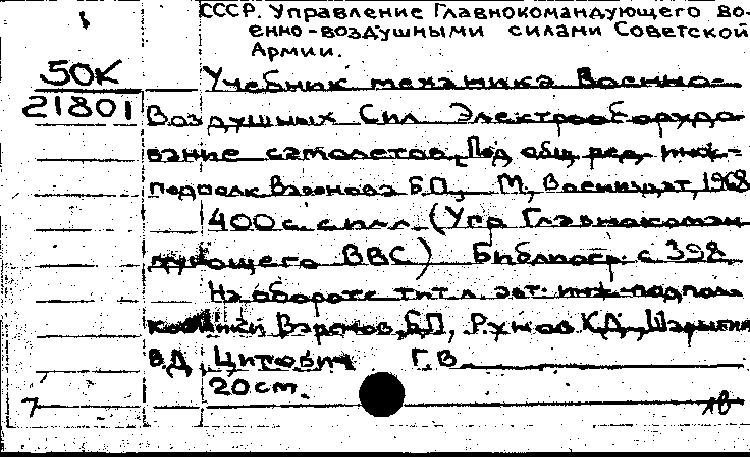 СССР. Управление Главнокомандующего во-
енно-воздушными силами Советской
Армии.
50К
Учебник механика Военно-
21801
Воздушных Сил. Электрооборудо-
вание самолетов. Под общ. ред. инж.-
подполк. Варенова Б.П., М., Воениздат, 1968
400 с. с илл. (Упр Главнокоман
дующего ВВС) Библиогр. с 398
На обороте тит. л. авт: инж-подпол-
Варенов, Б.П., К.Д.,
В.Д, Цитович Г.В
20 см.
7
18